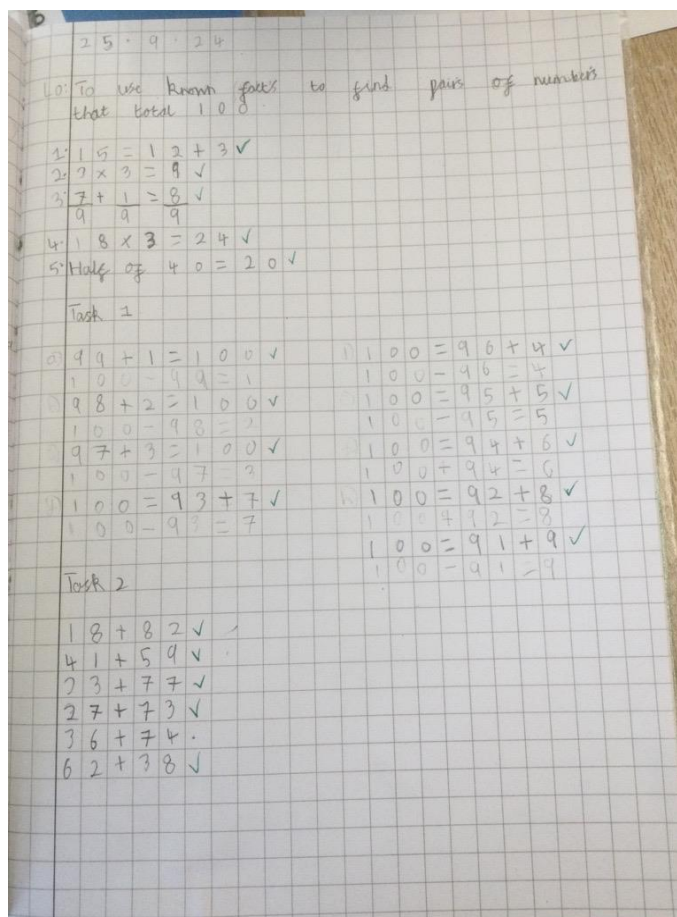 25.9.24
LO: To use known facts to find pairs of numbers
that total 100
1. 15 = 12 + 3 ✓
2. 3 × 3 = 9 ✓
3. 7/9 + 1/9 = 8/9 ✓
4. 18 × 3 = 24 ✓
5. Half of 40 = 20 ✓
Task 1
a) 99 + 1 = 100 ✓
100 - 99 = 1
98 + 2 = 100 ✓
100 - 98 = 2
97 + 3 = 100 ✓
100 - 97 = 3
100 = 93 + 7 ✓
100 - 93 = 7
100 = 96 + 4 ✓
100 - 96 = 4
100 = 95 + 5 ✓
100 - 95 = 5
100 = 94 + 6 ✓
100 + 94 = 6
100 = 92 + 8 ✓
100 + 92 = 8
100 = 91 + 9 ✓
100 - 91 = 9
Task 2
18 + 82 ✓
41 + 59 ✓
23 + 77 ✓
27 + 73 ✓
36 + 74 .
62 + 38 ✓